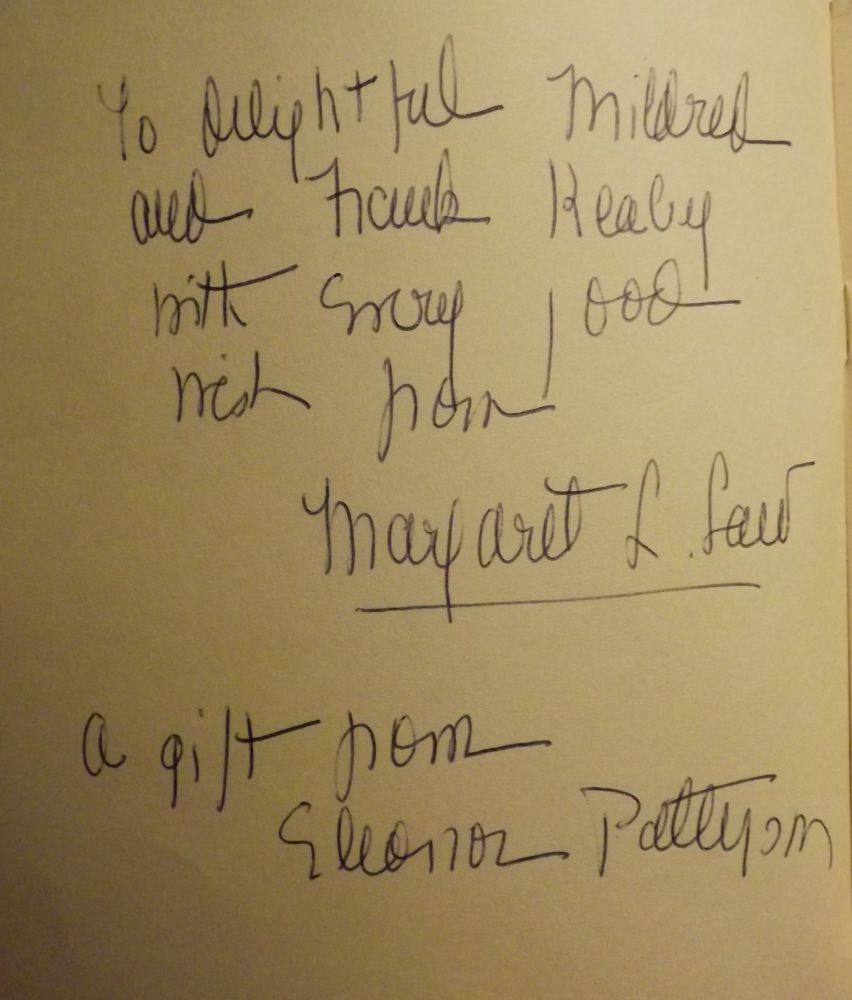 To delightful Mildred
and Frank Kealey
with Every good
wish from
Margaret L. Law
a gift from
Eleonor Pattyson